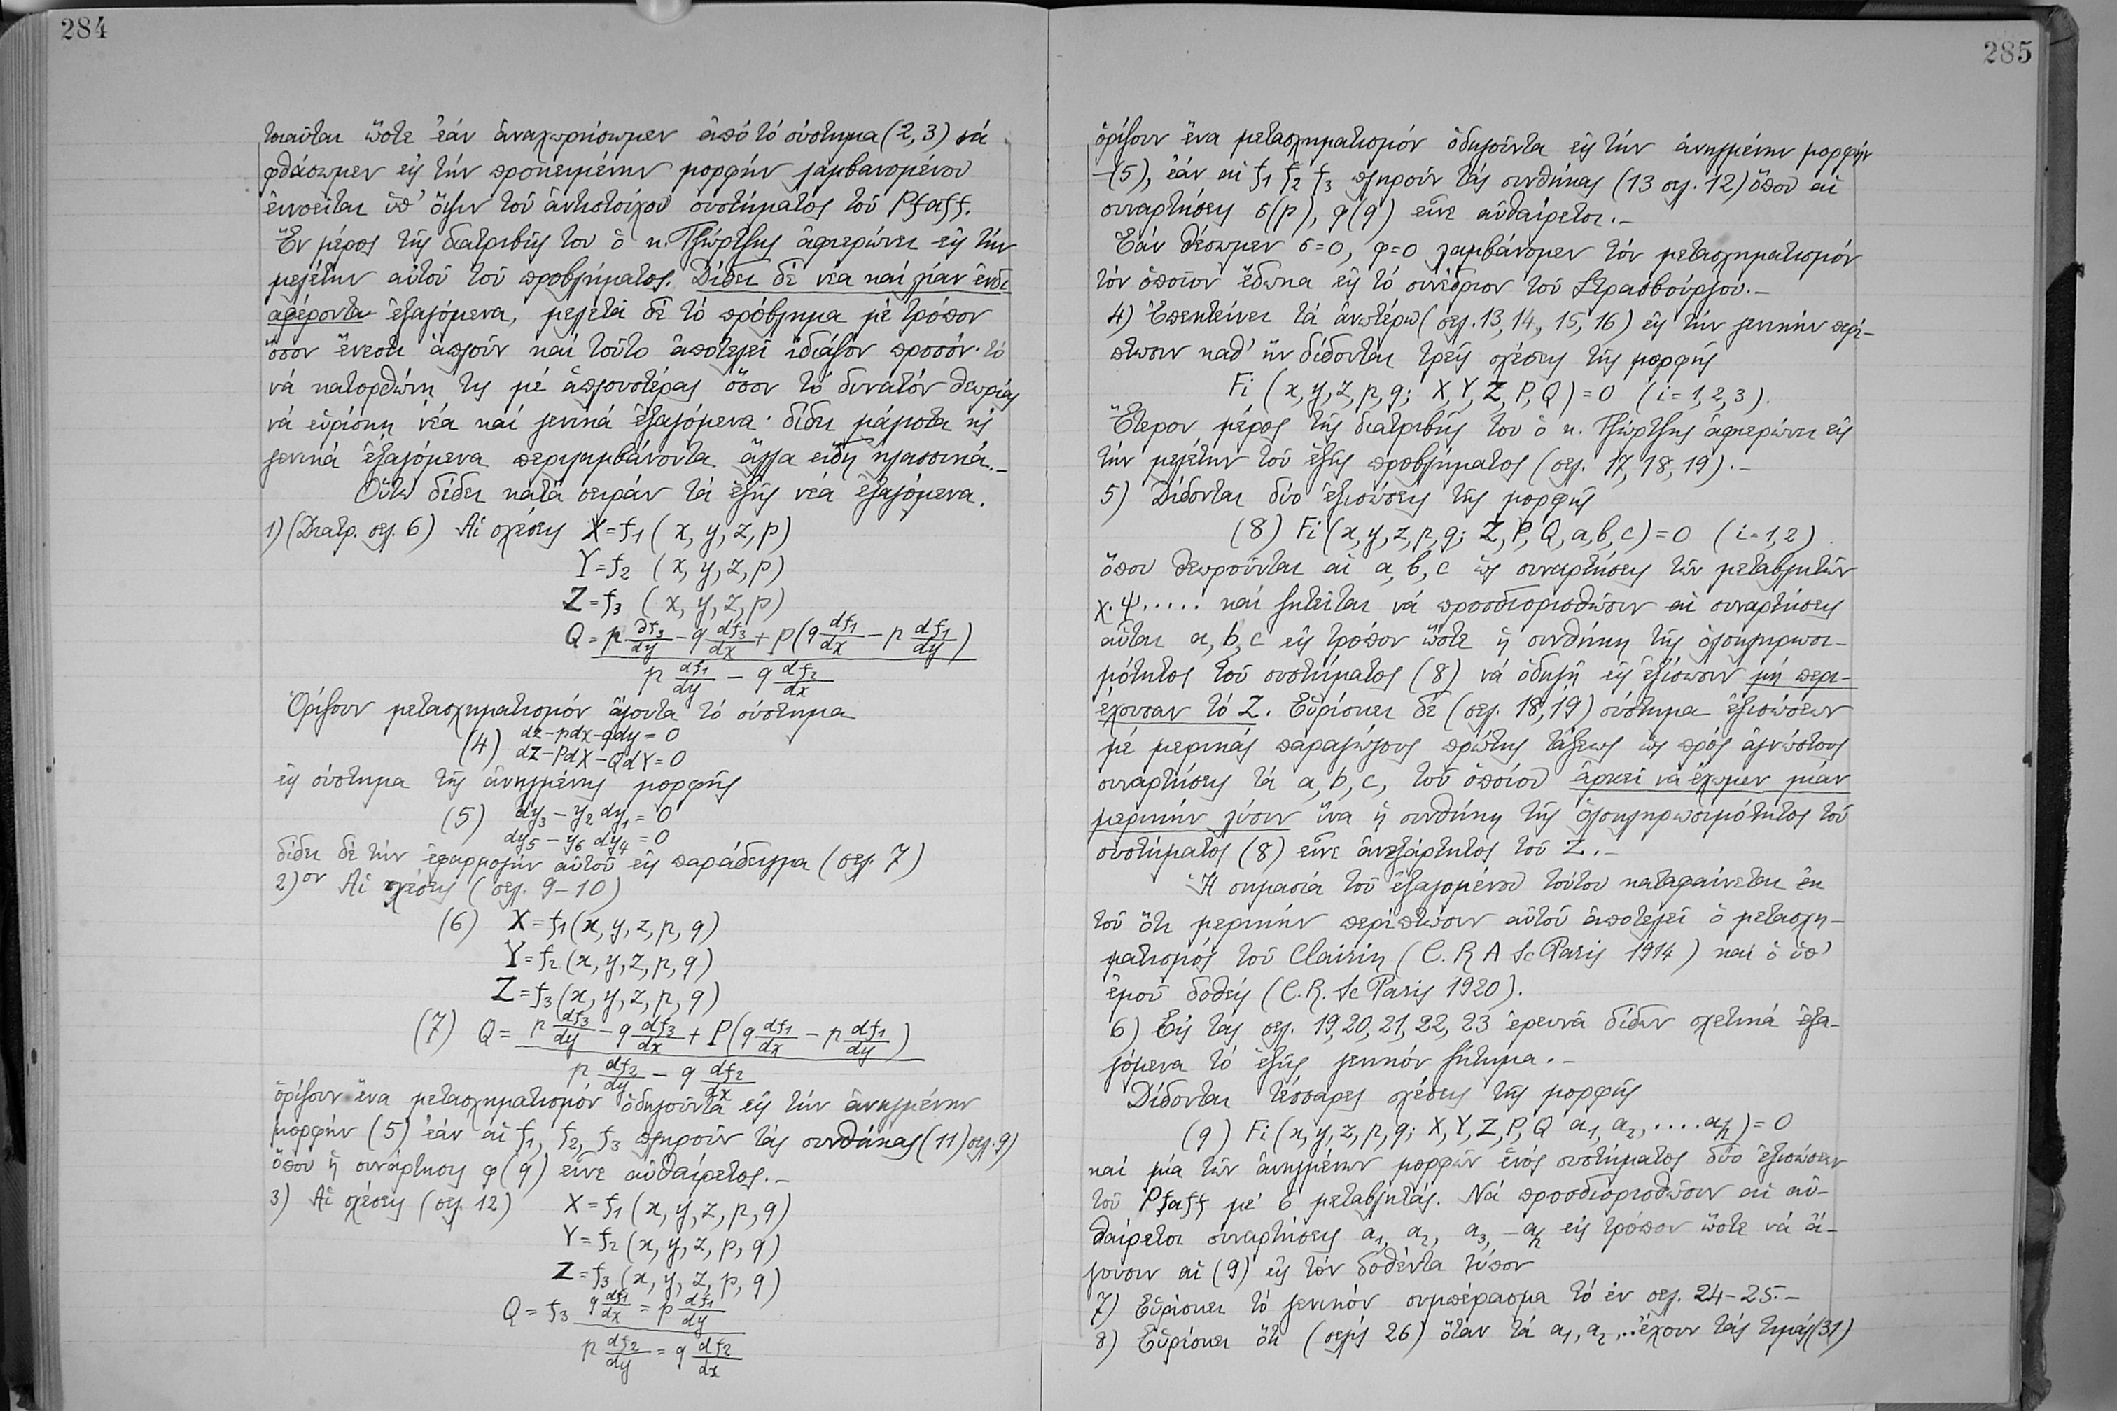 284
τοιαῦται ὥστε ἐάν ἀναχωρήσωμεν ἀπό τό σύστημα (2,3) νά
φθάσωμεν εἰς τήν προκειμένην μορφήν λαμβανομένου
ἐννοεῖται ὑπ' ὄψιν τοῦ ἀντιστοίχου συστήματος τοῦ Pfaff.
Ἕν μέρος τῆς διατριβῆς του ὁ κ. Τζώρτζης ἀφιερώνει εἰς τήν
μελέτην αὐτοῦ τοῦ προβλήματος. Δίδει δέ νέα καί λίαν ἐνδι
αφέροντα ἐξαγόμενα, μελετᾷ δέ τό πρόβλημα μέ τρόπον
ὅσον ἔνεστι ἁπλοῦν καί τοῦτο ἀποτελεῖ ἰδιάζον προσόν· τό
νά κατορθώνῃ τις μέ ἁπλουστέρας ὅσον τό δυνατόν θεωρίας
νά εὑρίσκῃ νέα καί γενικά ἐξαγόμενα· δίδει μάλιστα εἰς
γενικά ἐξαγόμενα περιλαμβάνοντα ἄλλα εἴδη κλασσικά.-
Οὕτω δίδει κατά σειράν τά ἑξῆς νέα ἐξαγόμενα.
1) (Διατρ. σελ. 6) Αἱ σχέσεις X=f1 (x, y, z, p)
Y=f2 (x, y, z, p)
Z=f3 (x, y, z, p)
Q = p df3/dy - q df3/dx + P(q df1/dx - p df1/dy)
p df1/dy - q df2/dx
Ὁρίζουν μετασχηματισμόν ἄγοντα τό σύστημα
(4) dz-pdx-qdy=0
dZ-PdX-QdY=0
εἰς σύστημα τῆς ἀνηγμένης μορφῆς
(5) dy3 - y2 dy1 = 0
dy5 - y6 dy4 = 0
δίδει δέ τήν ἐφαρμογήν αὐτοῦ εἰς παράδειγμα (σελ. 7)
2)ον Αἱ σχέσεις (σελ. 9-10)
(6) X=f1(x, y, z, p, q)
Y=f2 (x, y, z, p, q)
Z=f3 (x, y, z, p, q)
(7) Q = p df3/dy - q df3/dx + P(q df1/dx - p df1/dy)
p df2/dy - q df2/dx
ὁρίζουν ἕνα μετασχηματισμόν ὁδηγοῦντα εἰς τήν ἀνηγμένην
μορφήν (5) ἐάν αἱ f1, f2, f3 πληροῦν τάς συνθήκας (11) σελ. 9)
ὅπου ἡ συνάρτησις φ(q) εἶνε αὐθαίρετος.-
3) Αἱ σχέσεις (σελ. 12) X = f1 (x, y, z, p, q)
Y = f2 (x, y, z, p, q)
Z = f3 (x, y, z, p, q)
Q = f3 q df1/dx = p df1/dy
p df2/dy = q df2/dx
285
ὁρίζουν ἕνα μετασχηματισμόν ὁδηγοῦντα εἰς τήν ἀνηγμένην μορφήν
(5), ἐάν αἱ f1 f2 f3 πληροῦν τάς συνθήκας (13 σελ. 12) ὅπου αἱ
συναρτήσεις σ(p), φ(q) εἶνε αὐθαίρετοι.-
Ἐάν θέσωμεν σ=0, φ=0 λαμβάνομεν τόν μετασχηματισμόν
τόν ὁποῖον ἔδωκα εἰς τό συνέδριον τοῦ Στρασβούργου.-
4) Ἐπεκτείνει τά ἀνωτέρω (σελ. 13, 14, 15, 16) εἰς τήν γενικήν περί-
πτωσιν καθ' ἥν δίδονται τρεῖς σχέσεις τῆς μορφῆς
Fi (x, y, z, p, q; X, Y, Z, P, Q) = 0 (i=1,2,3).
Ἕτερον μέρος τῆς διατριβῆς του ὁ κ. Τζώρτζης ἀφιερώνει εἰς
τήν μελέτην τοῦ ἑξῆς προβλήματος (σελ. 17, 18, 19).-
5) Δίδονται δύο ἐξισώσεις τῆς μορφῆς
(8) Fi (x, y, z, p, q; Z, P, Q, a, b, c) = 0 (i=1,2).
ὅπου θεωροῦνται αἱ a, b, c ὡς συναρτήσεις τῶν μεταβλητῶν
χ. ψ..... καί ζητεῖται νά προσδιορισθῶσιν αἱ συναρτήσεις
αὗται a, b, c εἰς τρόπον ὥστε ἡ συνθήκη τῆς ὁλοκληρωσι-
μότητος τοῦ συστήματος (8) νά ὁδηγῇ εἰς ἐξίσωσιν μή περι-
έχουσαν τό Z. Εὑρίσκει δέ (σελ. 18, 19) σύστημα ἐξισώσεων
μέ μερικάς παραγώγους πρώτης τάξεως ὡς πρός ἀγνώστους
συναρτήσεις τά a, b, c, τοῦ ὁποίου ἀρκεῖ νά ἔχωμεν μίαν
μερικήν λύσιν ἵνα ἡ συνθήκη τῆς ὁλοκληρωσιμότητος τοῦ
συστήματος (8) εἶνε ἀνεξάρτητος τοῦ Z.-
Ἡ σημασία τοῦ ἐξαγομένου τούτου καταφαίνεται ἐκ
τοῦ ὅτι μερικήν περίπτωσιν αὐτοῦ ἀποτελεῖ ὁ μετασχη-
ματισμός τοῦ Clairin (C. R A Sc Paris 1914) καί ὁ ὑπ'
ἐμοῦ δοθείς (C.R. Sc Paris 1920).
6) Εἰς τάς σελ. 19, 20, 21, 22, 23 ἐρευνᾷ δίδων σχετικά ἐξα-
γόμενα τό ἑξῆς γενικόν ζήτημα.-
Δίδονται τέσσαρες σχέσεις τῆς μορφῆς
(9) Fi (x, y, z, p, q; X, Y, Z, P, Q a1, a2, .... ak) = 0
καί μία τῶν ἀνηγμένων μορφῶν ἑνός συστήματος δύο ἐξισώσεων
τοῦ Pfaff μέ 6 μεταβλητάς. Νά προσδιορισθῶσιν αἱ αὐ-
θαίρετοι συναρτήσεις a1, a2, a3, - ak εἰς τρόπον ὥστε νά ἄ-
γουσιν αἱ (9) εἰς τόν δοθέντα τύπον
7) Εὑρίσκει τό γενικόν συμπέρασμα τό ἐν σελ. 24-25.-
8) Εὑρίσκει ὅτι (σελίς 26) ὅταν τά a1, a2,.. ἔχουν τάς τιμάς (31)